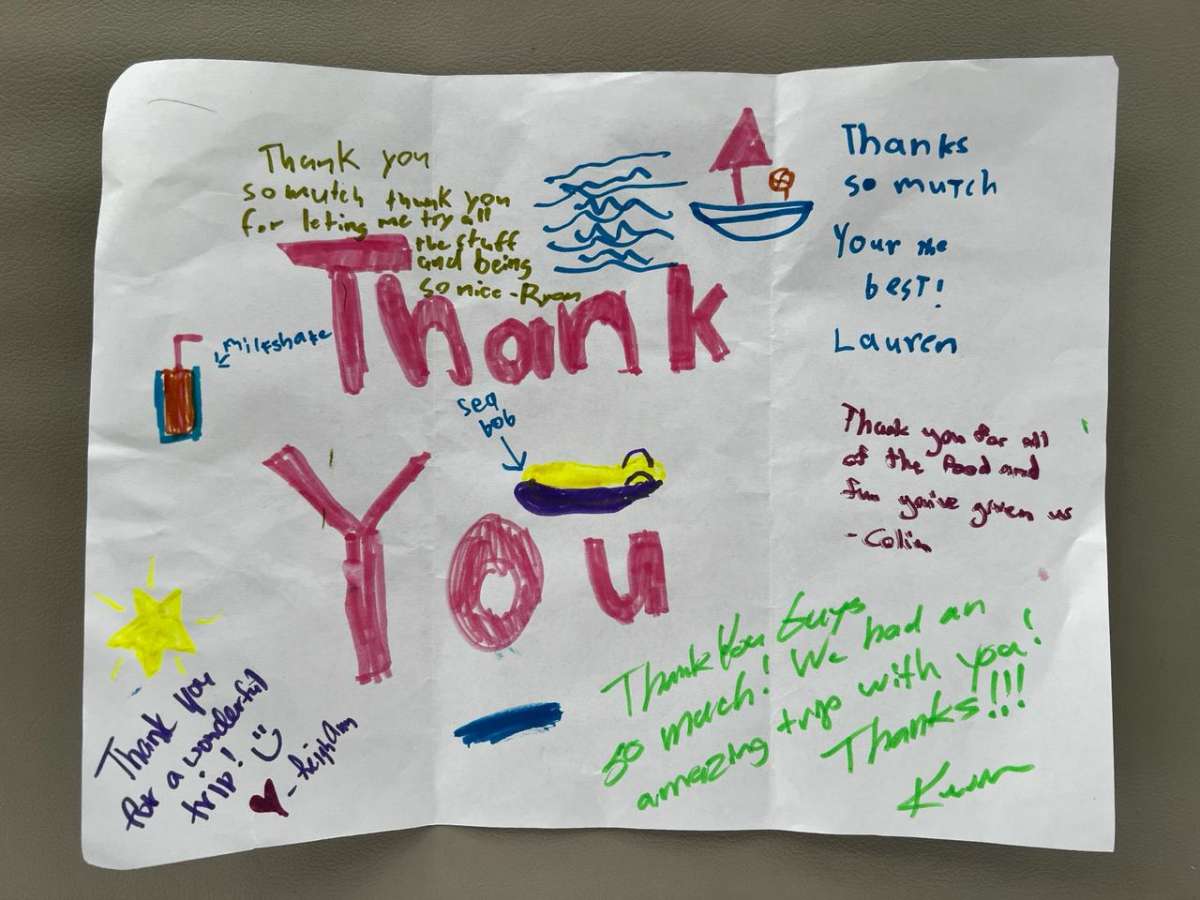 Thank you
so mutch thank you
for leting me try all
the stuff
and being
so nice - Ryan
Thanks
so mutch
Your the
best!
Lauren
Thank
milkshake
sea
bob
You
Thank you for all
of the food and
fun you've given us
- Colin
Thank You Guys
so much! We had an
amazing trip with you!
Thanks!!!
Thank you
for a wonderful
trip!